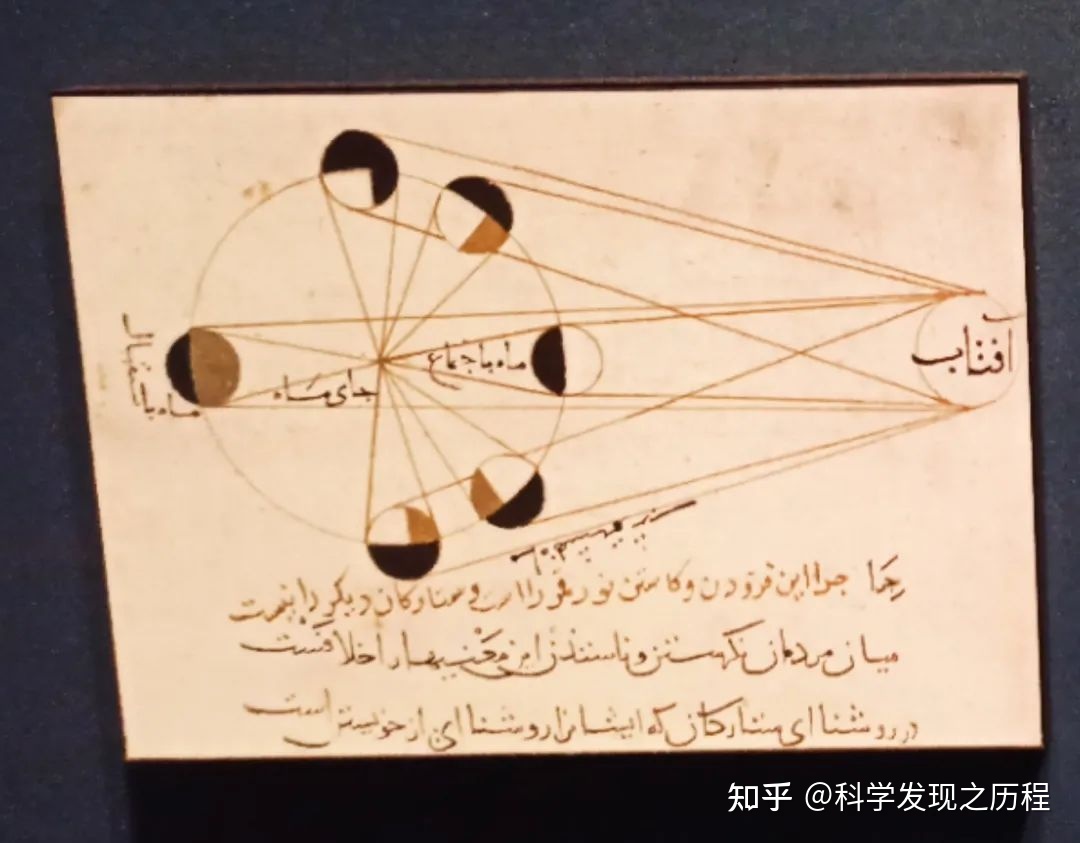 افتاب
ماه باجتماع
جای ماه
ماه باستقبال
چرا این فزودن و کاستن نور قمر را است و ستارکان دیکر را نیست
میان مردمان نکرستن و ناسنندن این معنیها را خلافست
در روشنا ای ستارکان که ایشانرا روشنا ای از خویشتن است
知乎 @科学发现之历程